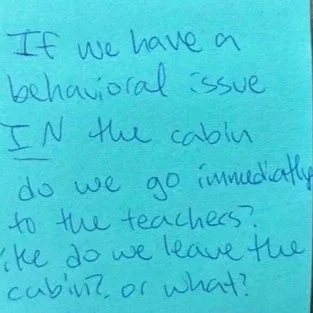 If we have a
behavioral issue
IN the cabin
do we go immediatly
to the teachers?
like do we leave the
cabin?, or what?